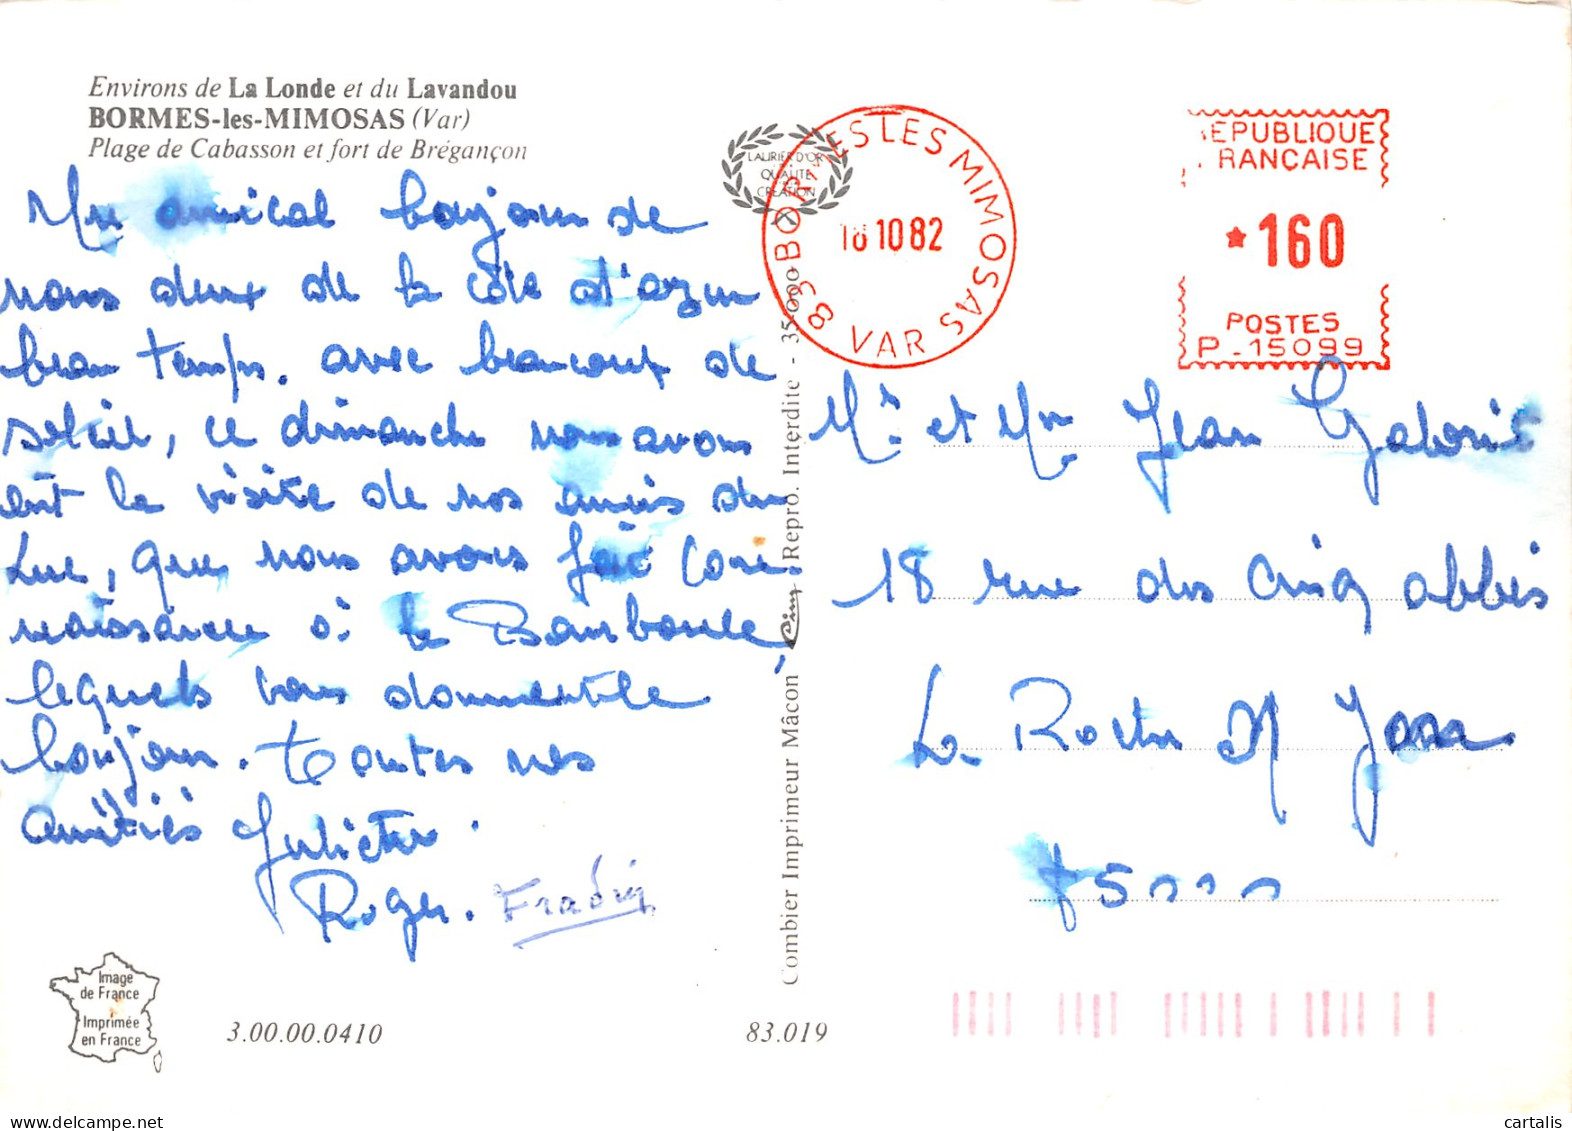 Environs de La Londe et du Lavandou
BORMES-les-MIMOSAS (Var)
Plage de Cabasson et fort de Brégançon
Un amical bonjour de
nous deux de la côte d'azur
beau temps. avec beaucoup de
soleil, ce dimanche nous avons
eût la visite de nos amis du
Luc, que nous avons fait con
naissance à la Bourboule,
lequels vous donnent le
bonjour. Toutes nos
amitiés Juliette.
Roger. Fradin
Image
de France
Imprimée
en France
3.00.00.0410
83.019
Combier Imprimeur Mâcon Cim Repro. Interdite - 35.000
LAURIER D'OR
QUALITÉ
CRÉATION
83 BORMES LES MIMOSAS
10 82
VAR
RÉPUBLIQUE
FRANÇAISE
*160
POSTES
P.15099
Mr et Mme Jean Gaborit
18 rue des Cinq abbés
La Roche S/ Yon
85000
cartalis
www.delcampe.net